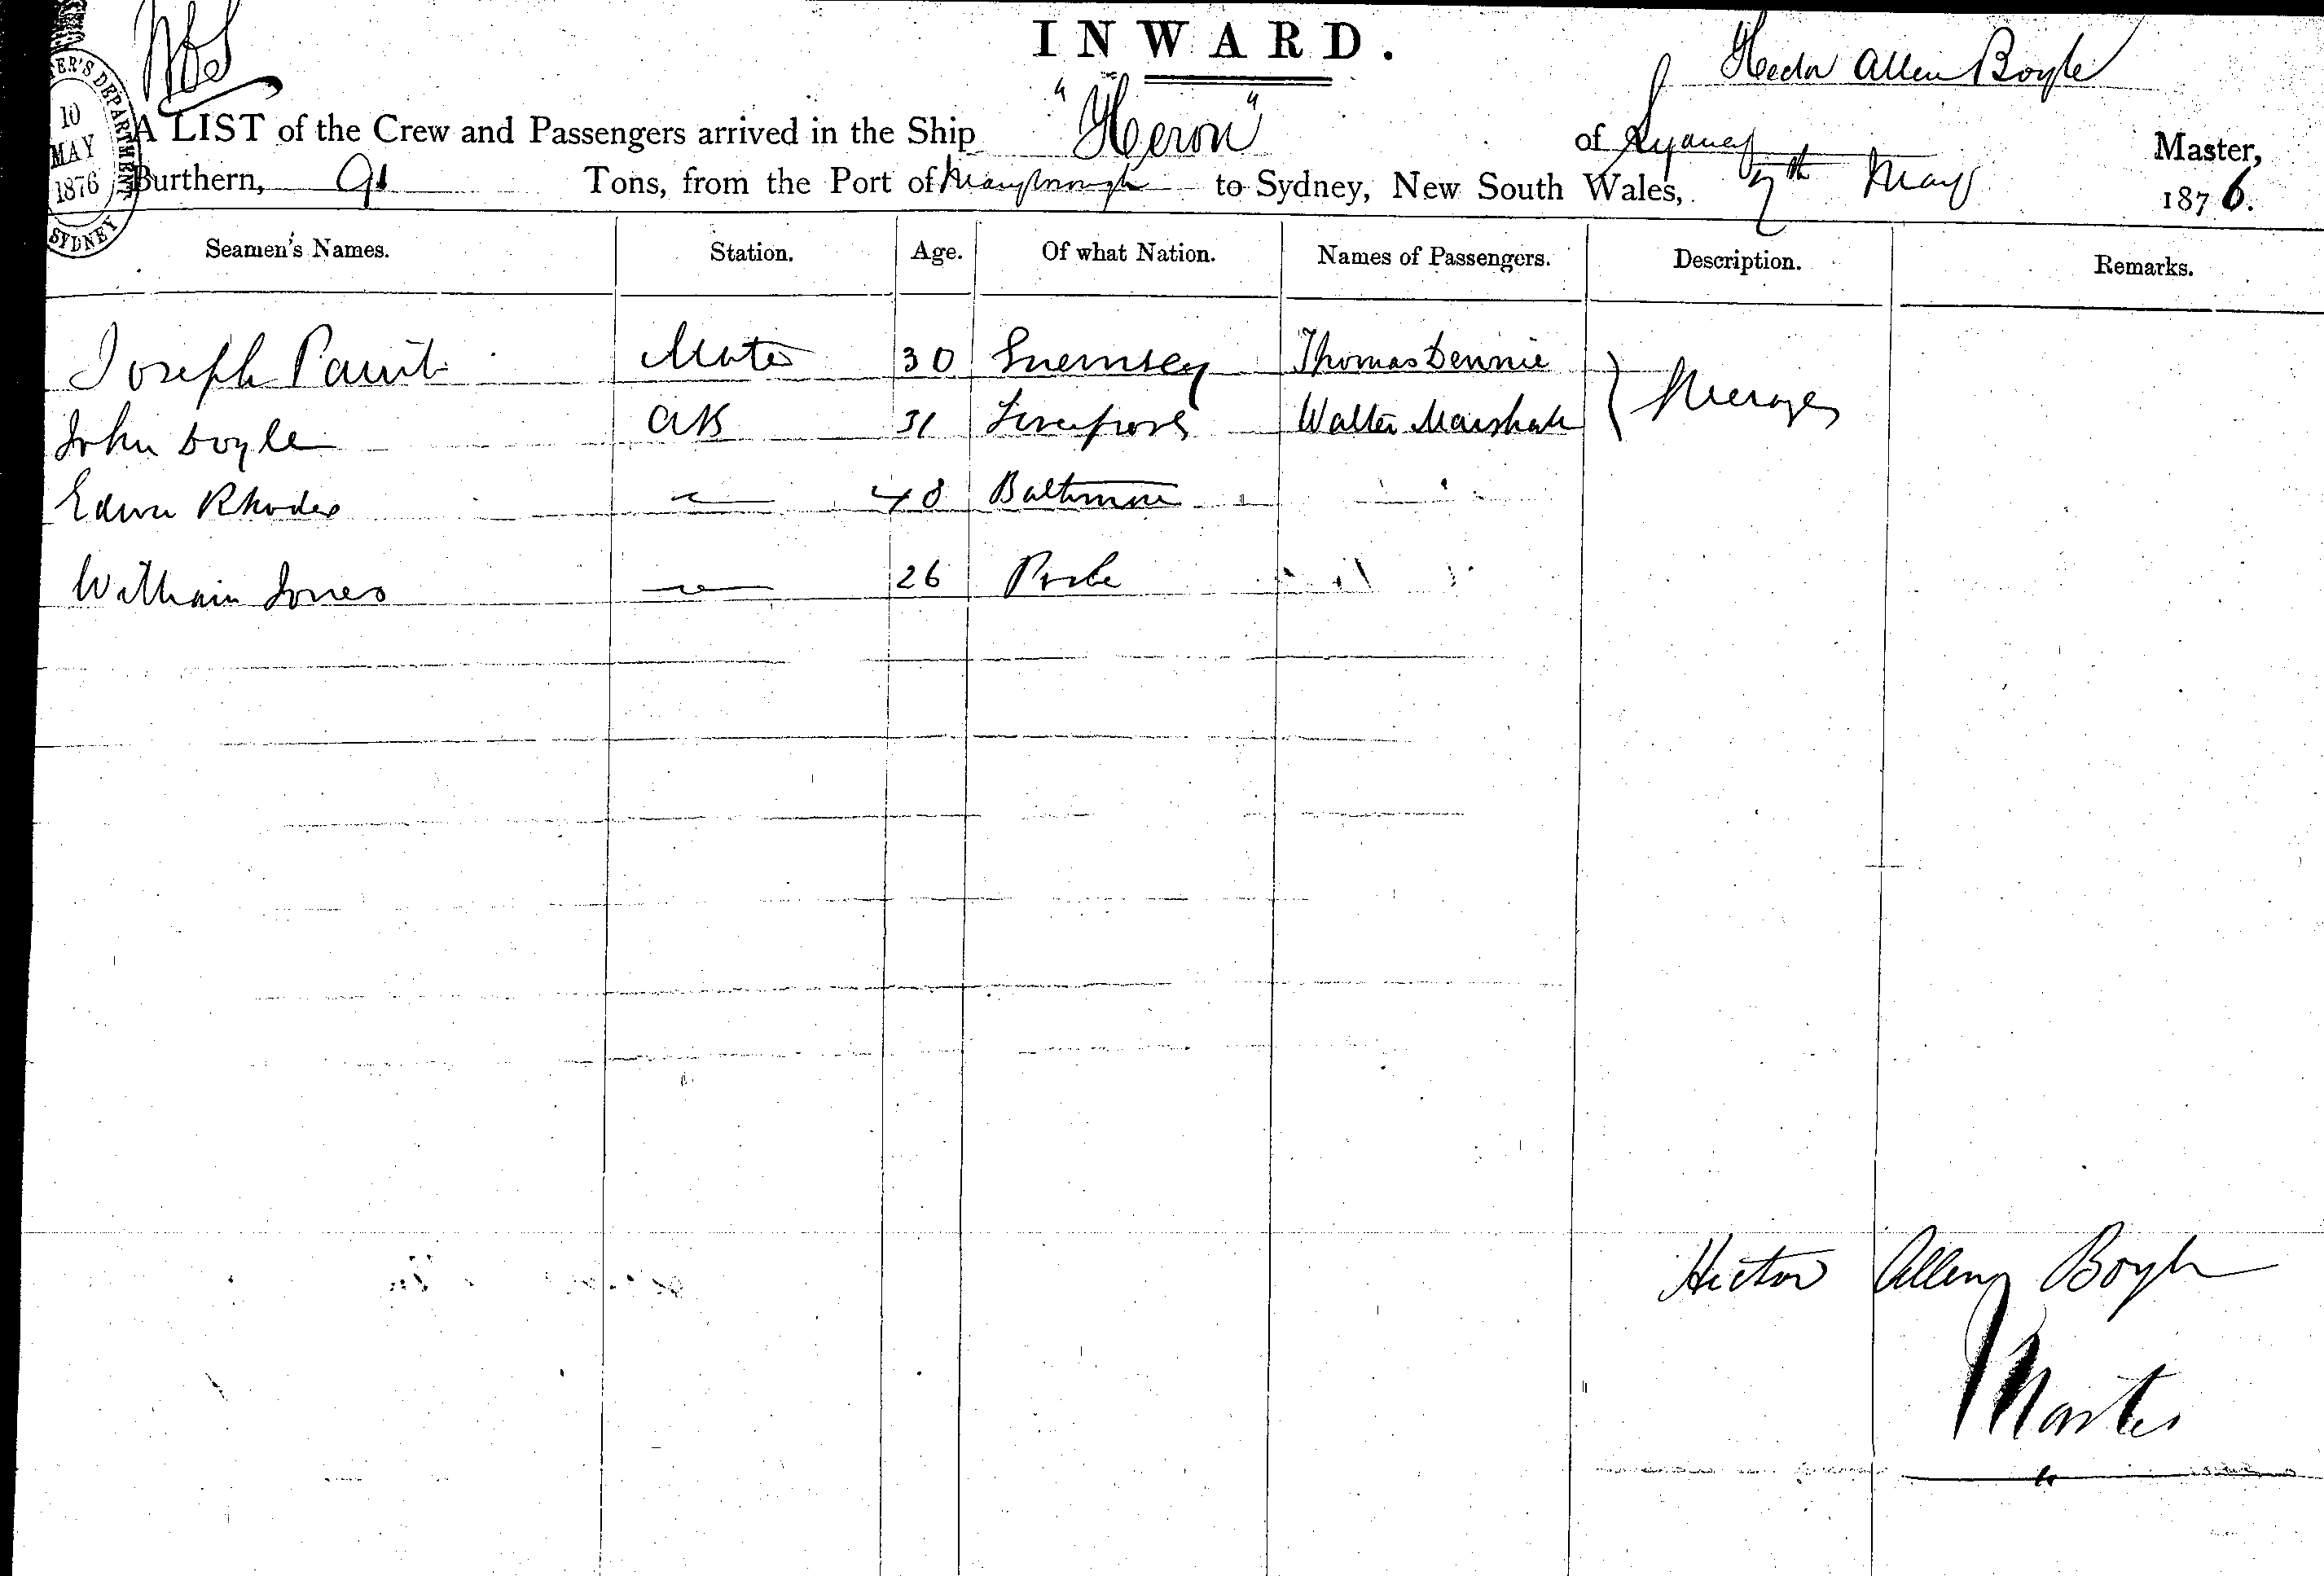 INWARD.
Hector Allen Boyle
A LIST of the Crew and Passengers arrived in the Ship "Heron" of Sydney Master,
Burthern, 91 Tons, from the Port of Maryborough to Sydney, New South Wales, 7th May 1876.
10
MAY
1876
SYDNEY
Seamen's Names. Station. Age. Of what Nation. Names of Passengers. Description. Remarks.
Joseph Mate 30 Guernsey Thomas Dennie
John Doyle AB 31 Liverpool Walter Marshall
Edwin Rhodes 48 Baltimore
William Jones 26
Hector Allen Boyle
Master